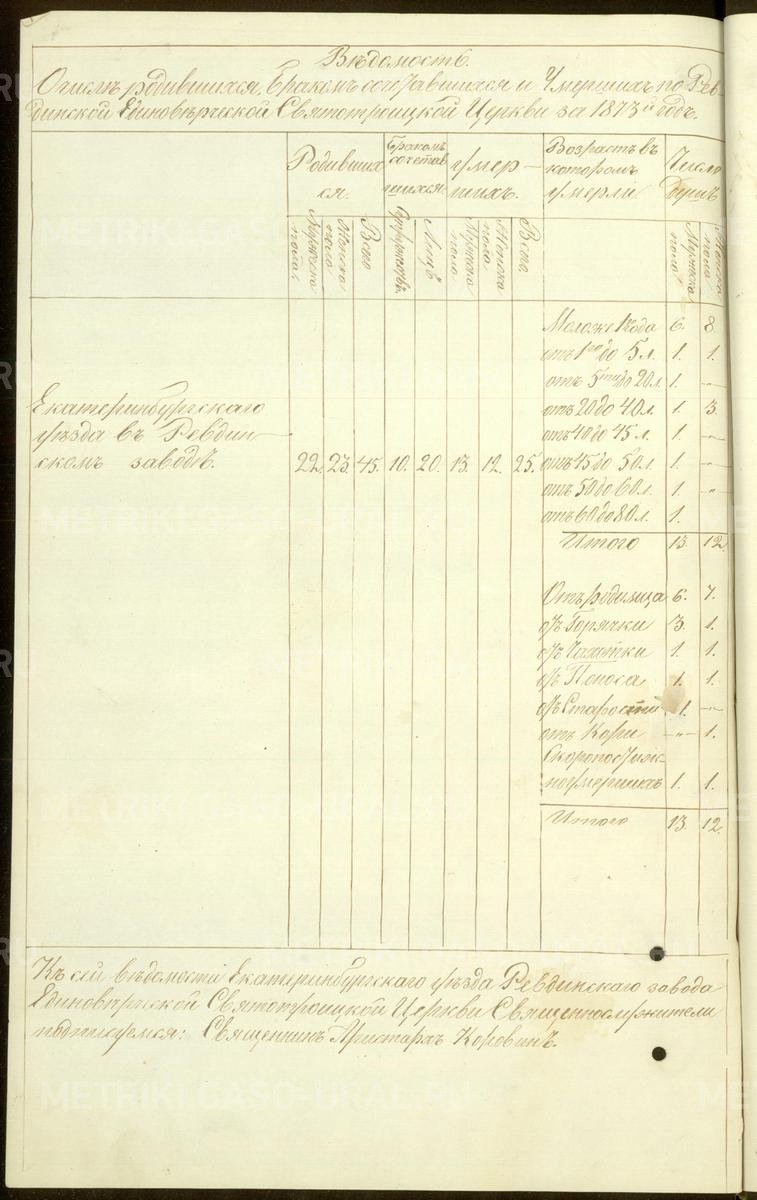 Вѣдомость.
О числѣ родившихся, Бракомъ сочетавшихся и Умершихъ по Рев-
динской Единовѣрческой Святотроицкой Церкви за 1873й годъ.
Родивших
ся.
Бракомъ
сочетав
шихся.
Умер-
шихъ.
Возрастъ въ
которомъ
умерли
Число
душъ
Мужска
пола.
Женска
пола
Всго
Супружествъ.
Лицъ
Мужска
пола
Женска
пола
Всго.
Мужска
пола
Женска
пола
Моложе 1 года 6. 8.
отъ 1го до 5 л. 1. 1.
отъ 5ти до 20 л. 1. -"-
отъ 20 до 40 л. 1. 3.
отъ 40 до 45 л. 1. -"-
Екатеринбургскаго
уѣзда въ Ревдин-
скомъ заводѣ. 22. 23. 45. 10. 20. 13. 12. 25. отъ 45 до 50 л. 1. -"-
отъ 50 до 60 л. 1. -"-
отъ 60 до 80 л. 1.
Итого 13. 12.
Отъ родимца 6. 7.
отъ Горячки 3. 1.
отъ Чахотки 1. 1.
отъ Поноса 1. 1.
отъ Старости 1. -"-
отъ Кори -"- 1.
Скоропостиж-
ноумершихъ 1. 1.
Итого 13. 12.
Къ сей вѣдомости Екатеринбургскаго уѣзда Ревдинскаго завода
Единовѣрческой Святотроицкой Церкви Священнослужители
подписуемся: Священникъ Аристархъ Коровинъ.
METRIKI.GASO-URAL.RU